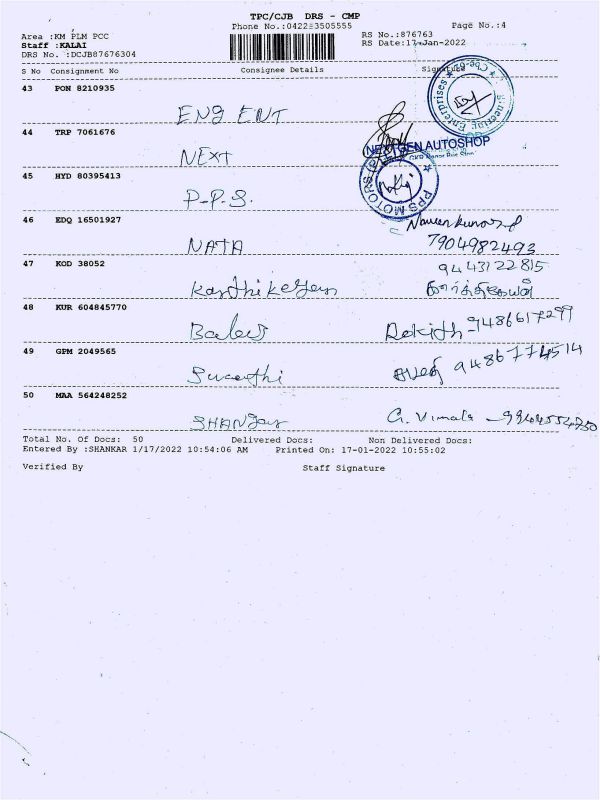 TPC/CJB DRS - CMP
Phone No.:0422-3505555 Page No.:4
Area :KM PLM PCC RS No.:876763
Staff :KALAI RS Date:17-Jan-2022
DRS No. :DCJB87676304
S No Consignment No Consignee Details Signature
43 PON 8210935
ENG ENT
44 TRP 7061676
NEXT NEXTGEN AUTOSHOP
45 HYD 80395413
P.P.S. PPS MOTORS
46 EDQ 16501927 Naveen kumar
NATA 7904982493
47 KOD 38052 9443122815
Karthikeyan கார்த்திகேயன்
48 KUR 604845770
9486617299
49 GPM 2049565
9486774514
50 MAA 564248252
G. Vimala - 9964554750
Total No. Of Docs: 50 Delivered Docs: Non Delivered Docs:
Entered By :SHANKAR 1/17/2022 10:54:06 AM Printed On: 17-01-2022 10:55:02
Verified By Staff Signature